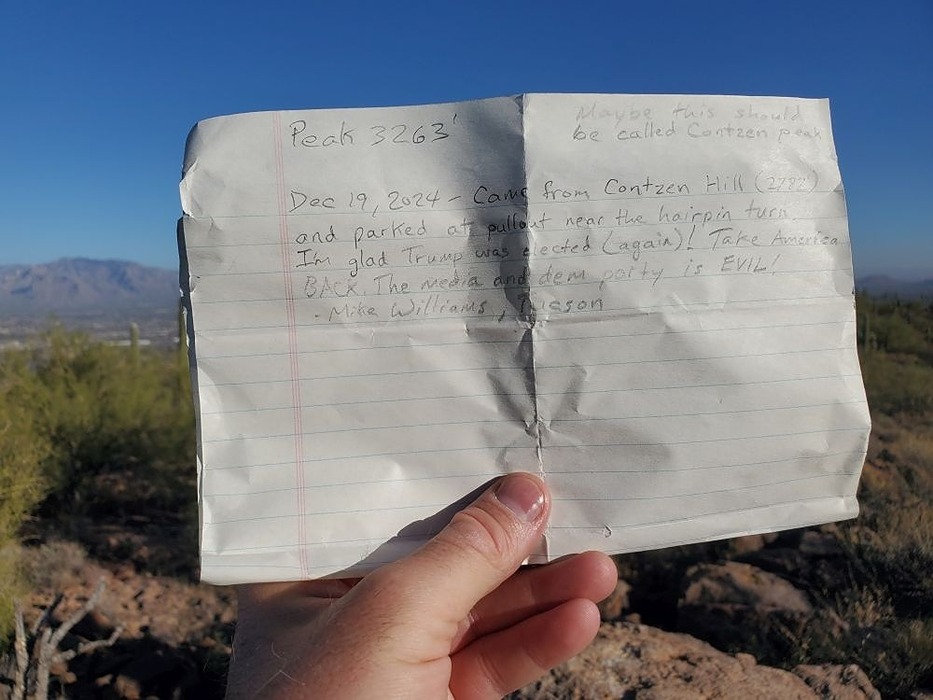 Peak 3263'
Maybe this should
be called Contzen peak
Dec 19, 2024 - Came from Contzen Hill (2782')
and parked at pullout near the hairpin turn.
I'm glad Trump was elected (again)! Take America
BACK. The media and dem party is EVIL!
- Mike Williams, Tucson